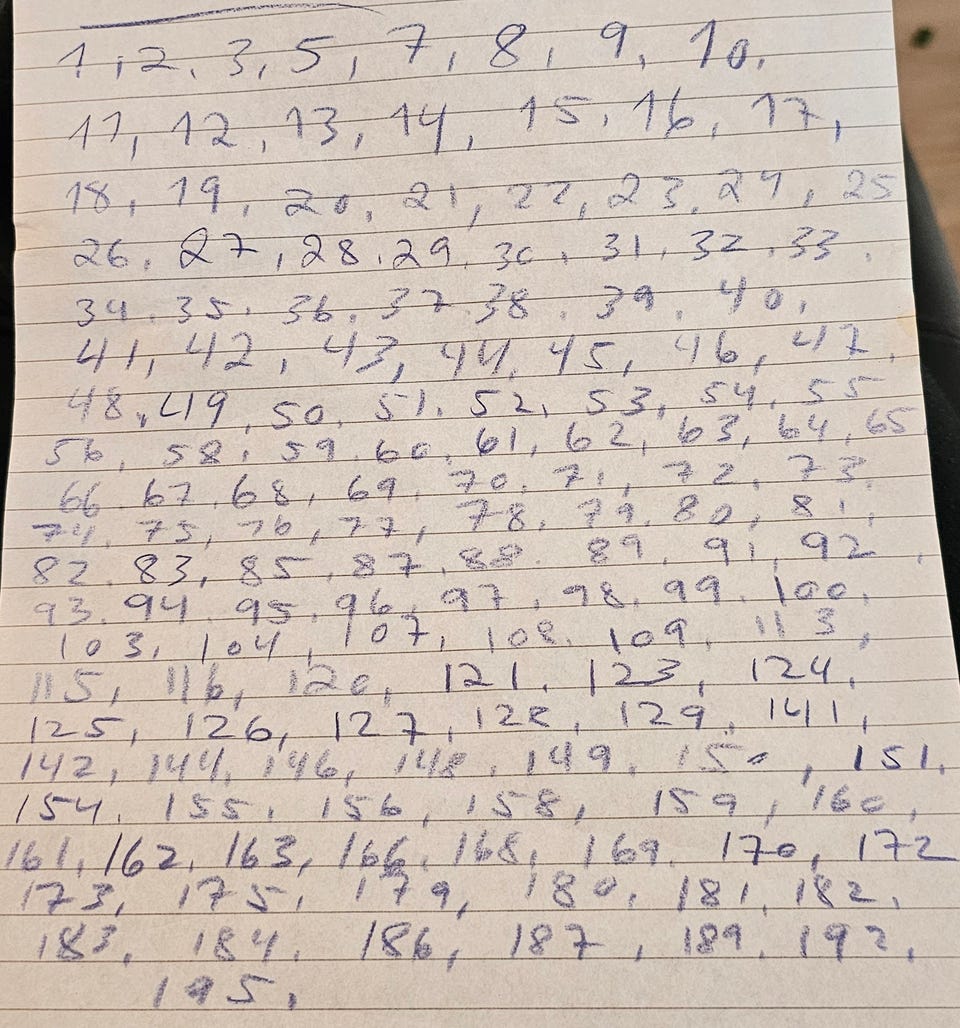 1, 2, 3, 5, 7, 8, 9, 10,
11, 12, 13, 14, 15, 16, 17,
18, 19, 20, 21, 22, 23, 24, 25
26, 27, 28, 29, 30, 31, 32, 33,
34, 35, 36, 37 38, 39, 40,
41, 42, 43, 44, 45, 46, 47,
48, 49, 50, 51, 52, 53, 54, 55
56, 58, 59, 60, 61, 62, 63, 64, 65
66, 67, 68, 69, 70, 71, 72, 73,
74, 75, 76, 77, 78, 79, 80, 81,
82, 83, 85, 87, 88, 89, 91, 92,
93, 94, 95, 96, 97, 98, 99, 100,
103, 104, 107, 108, 109, 113,
115, 116, 120, 121, 123, 124,
125, 126, 127, 128, 129, 141,
142, 144, 146, 148, 149, 150, 151,
154, 155, 156, 158, 159, 160,
161, 162, 163, 166, 168, 169, 170, 172
173, 175, 179, 180, 181, 182,
183, 184, 186, 187, 189, 192,
195,